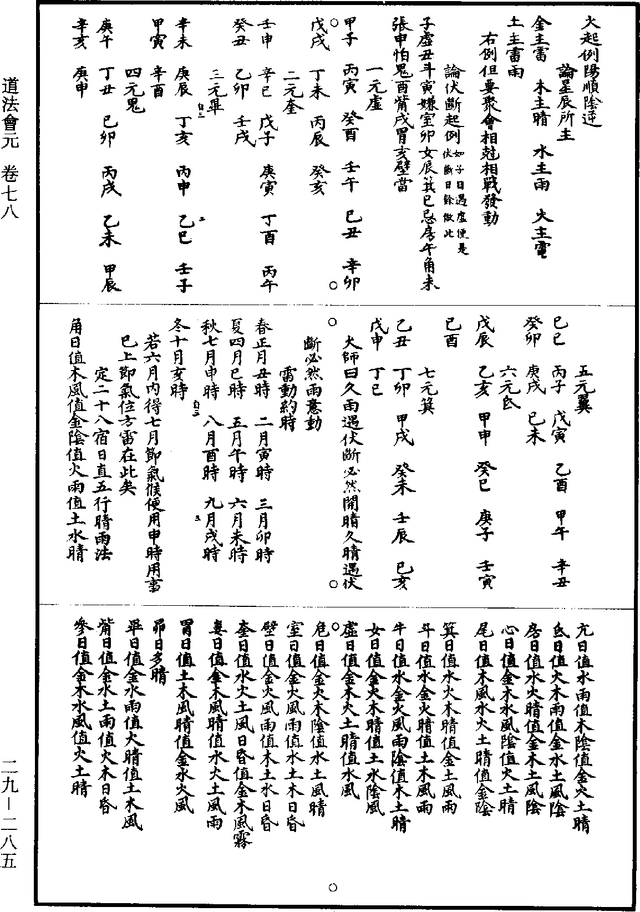 道法會元　卷七八
二九－二八五
火起例陽順陰逆
論星辰所主
金主雷　木主晴　水主雨　火主電
土主雷雨
右例但要聚會相尅相戰發動
論伏斷起例如子日遇虛便是伏斷日餘倣此
子虛丑斗寅嫌室卯女辰箕巳忌房午角未
張申怕鬼酉觜戌胃亥壁當
一元虛
甲子　丙寅　癸酉　壬午　己丑　辛卯
戊戌　丁未　丙辰　癸亥
二元奎
壬申　辛巳　戊子　庚寅　丁酉　丙午
癸丑　乙卯　壬戌
三元畢
辛未　庚辰　丁亥　丙申　乙巳　壬子
甲寅　辛酉
四元鬼
庚午　丁丑　己卯　丙戌　乙未　甲辰
辛亥　庚申
五元翼
己巳　丙子　戊寅　乙酉　甲午　辛丑
癸卯　庚戌　己未
六元氐
戊辰　乙亥　甲申　癸巳　庚子　壬寅
己酉
七元箕
乙丑　丁卯　甲戌　癸未　壬辰　己亥
戊申　丁巳
火師曰久雨遇伏斷必然開晴久晴遇伏
斷必然雨意動
雷動約時
春正月丑時　二月寅時　三月卯時
夏四月巳時　五月午時　六月未時
秋七月申時　八月酉時　九月戌時
冬十月亥時
若六月內得七月節氣候便用申時用事
已上節氣位方雷在此矣
定二十八宿日直五行晴雨法
角日值木風值金陰值火雨值土水晴
亢日值水雨值木陰值金火土晴
氐日值火木雨值金水土風陰
房日值水火晴值金木土風陰
心日值金木水風陰值火土晴
尾日值木風水火土晴值金陰
箕日值水火木晴值金土風雨
斗日值水金火晴值土木風雨
牛日值水金火風雨陰值木土晴
女日值金火木晴值土水陰風
虛日值金木火土晴值水風
危日值金火木陰值水土風晴
室日值金火風雨值水土木日昏
壁日值金火風雨值木土水日昏
奎日值水火土風日昏值金木風霧
婁日值金木風晴值水火土風雨
胃日值土木風晴值金水火風
昴日多晴
畢日值金水雨值火晴值土木風
觜日值金水土雨值火木日昏
參日值金木水風值火土晴